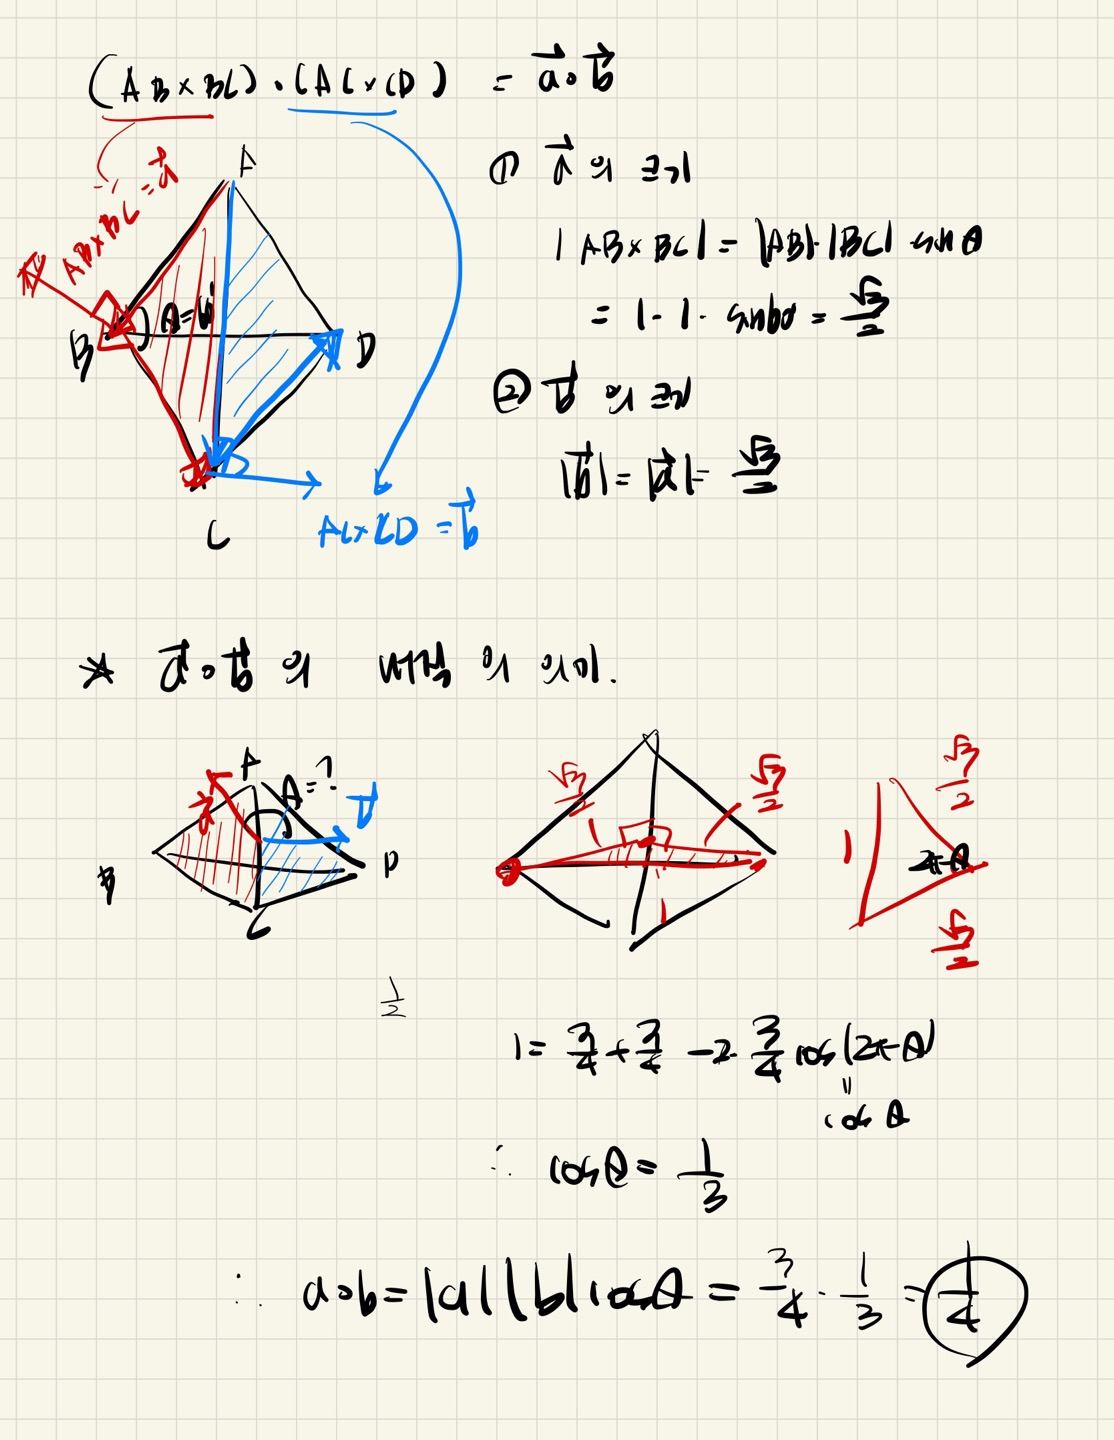 (AB×BC)·(AC×CD) = a⃗∘b⃗
AB×BC = a⃗
A
θ=60°
B
D
C
AC×CD = b⃗
① a⃗ 의 크기
|AB×BC| = |AB|·|BC| sinθ
= 1·1· sin60 = √3/2
② b⃗ 의 크기
|b⃗| = |a⃗| = √3/2
☆ a⃗∘b⃗ 의 내적 의 의미.
A
θ=?
a⃗
b⃗
B
D
C
√3/2
√3/2
1
1
1
√3/2
2π-θ
√3/2
1/2
1 = 3/4 + 3/4 - 2· 3/4 cos(2π-θ)
=
cosθ
∴ cosθ = 1/3
∴ a∘b = |a||b|cosθ = 3/4 · 1/3 = 1/4